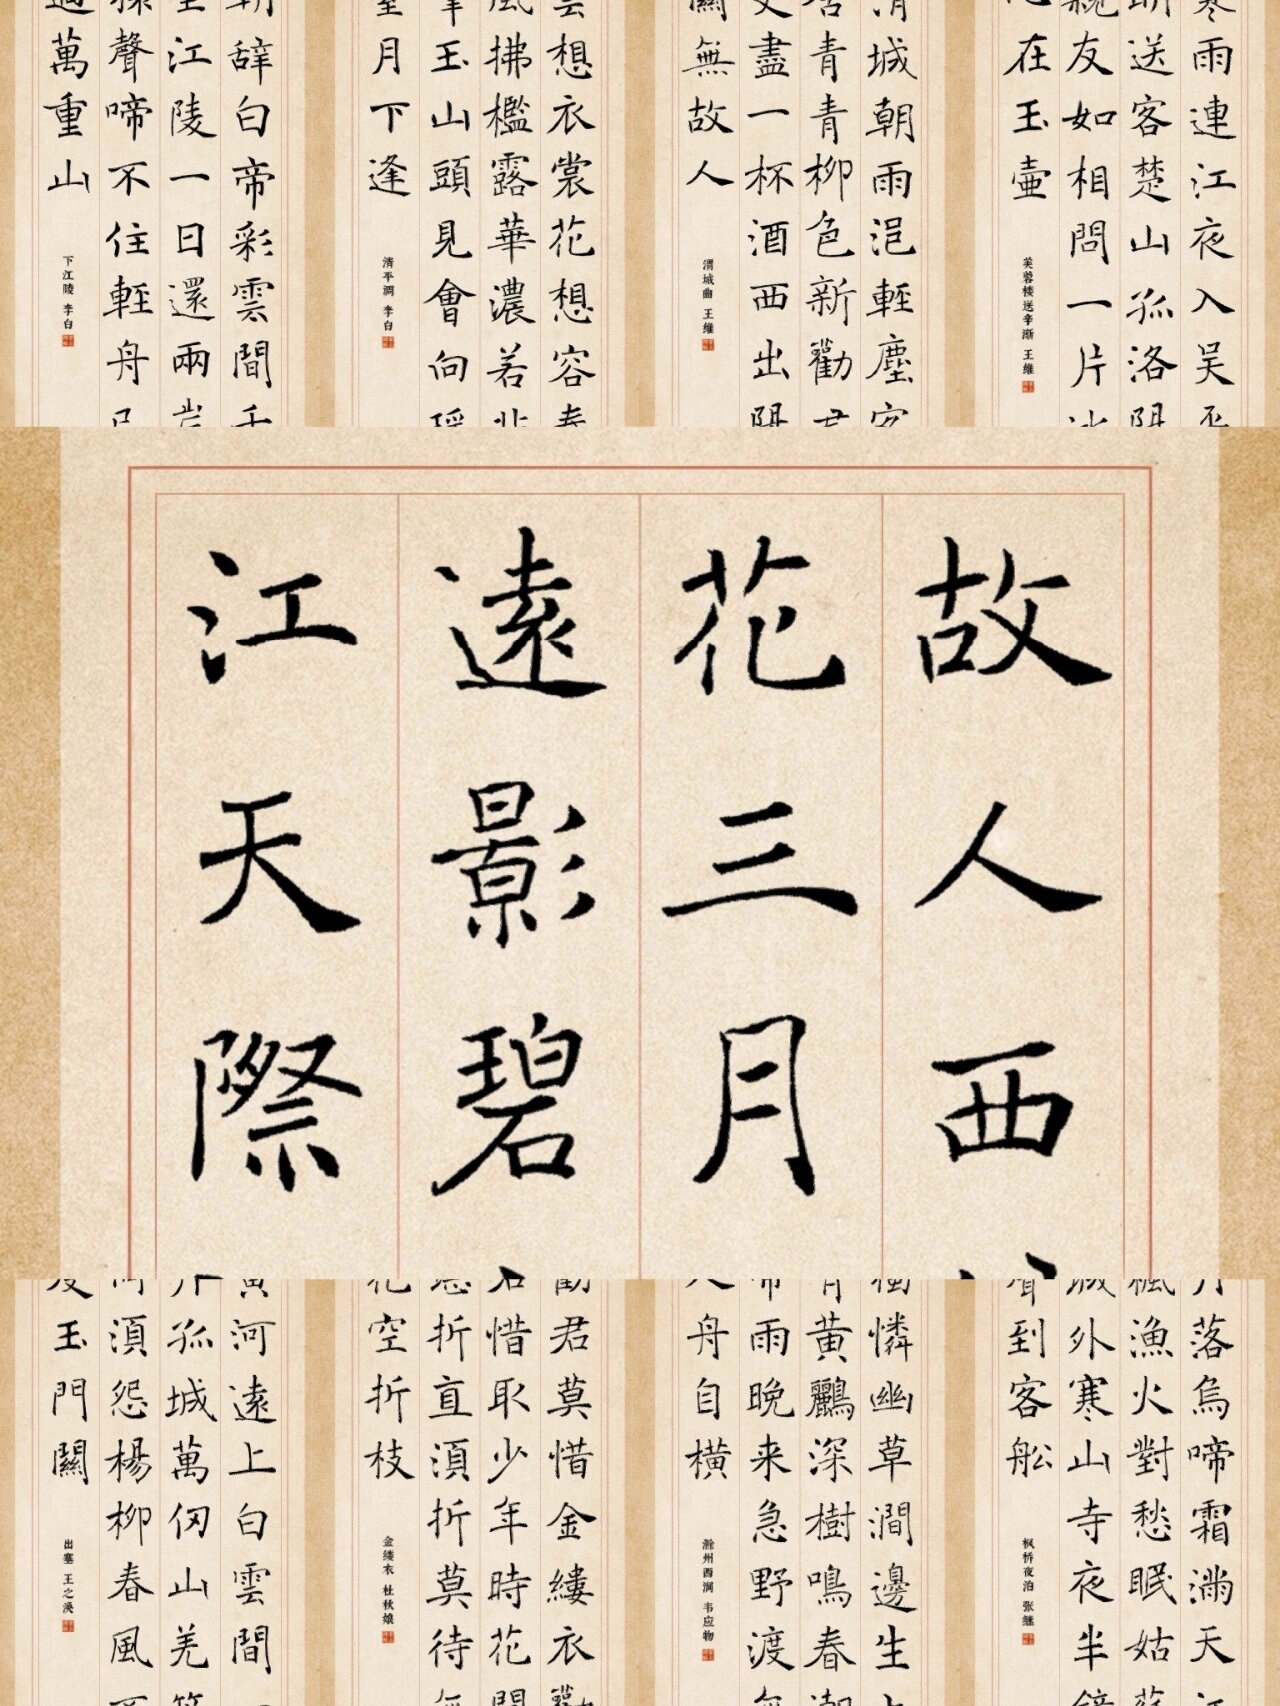 寒雨連江夜入吴
明送客楚山孤洛陽
親友如相問一片冰
在玉壺
芙蓉楼送辛渐 王维
渭城朝雨浥輕塵客
舍青青柳色新勸君
更盡一杯酒西出陽
關無故人
渭城曲 王维
雲想衣裳花想容春
風拂檻露華濃若非
羣玉山頭見會向瑶
臺月下逢
清平調 李白
朝辭白帝彩雲間千
里江陵一日還兩岸
猿聲啼不住輕舟已
過萬重山
下江陵 李白
故人西
花三月
遠影碧
江天際
月落烏啼霜滿天江
楓漁火對愁眠姑蘇
城外寒山寺夜半鐘
聲到客舩
枫桥夜泊 张继
獨憐幽草澗邊生上
有黄鸝深樹鳴春潮
帶雨晚来急野渡無
人舟自横
滁州西涧 韦应物
勸君莫惜金縷衣勸
君惜取少年時花開
堪折直湏折莫待無
花空折枝
金缕衣 杜秋娘
黄河遠上白雲間一
片孤城萬仞山羌笛
何湏怨楊柳春風不
度玉門關
出塞 王之涣